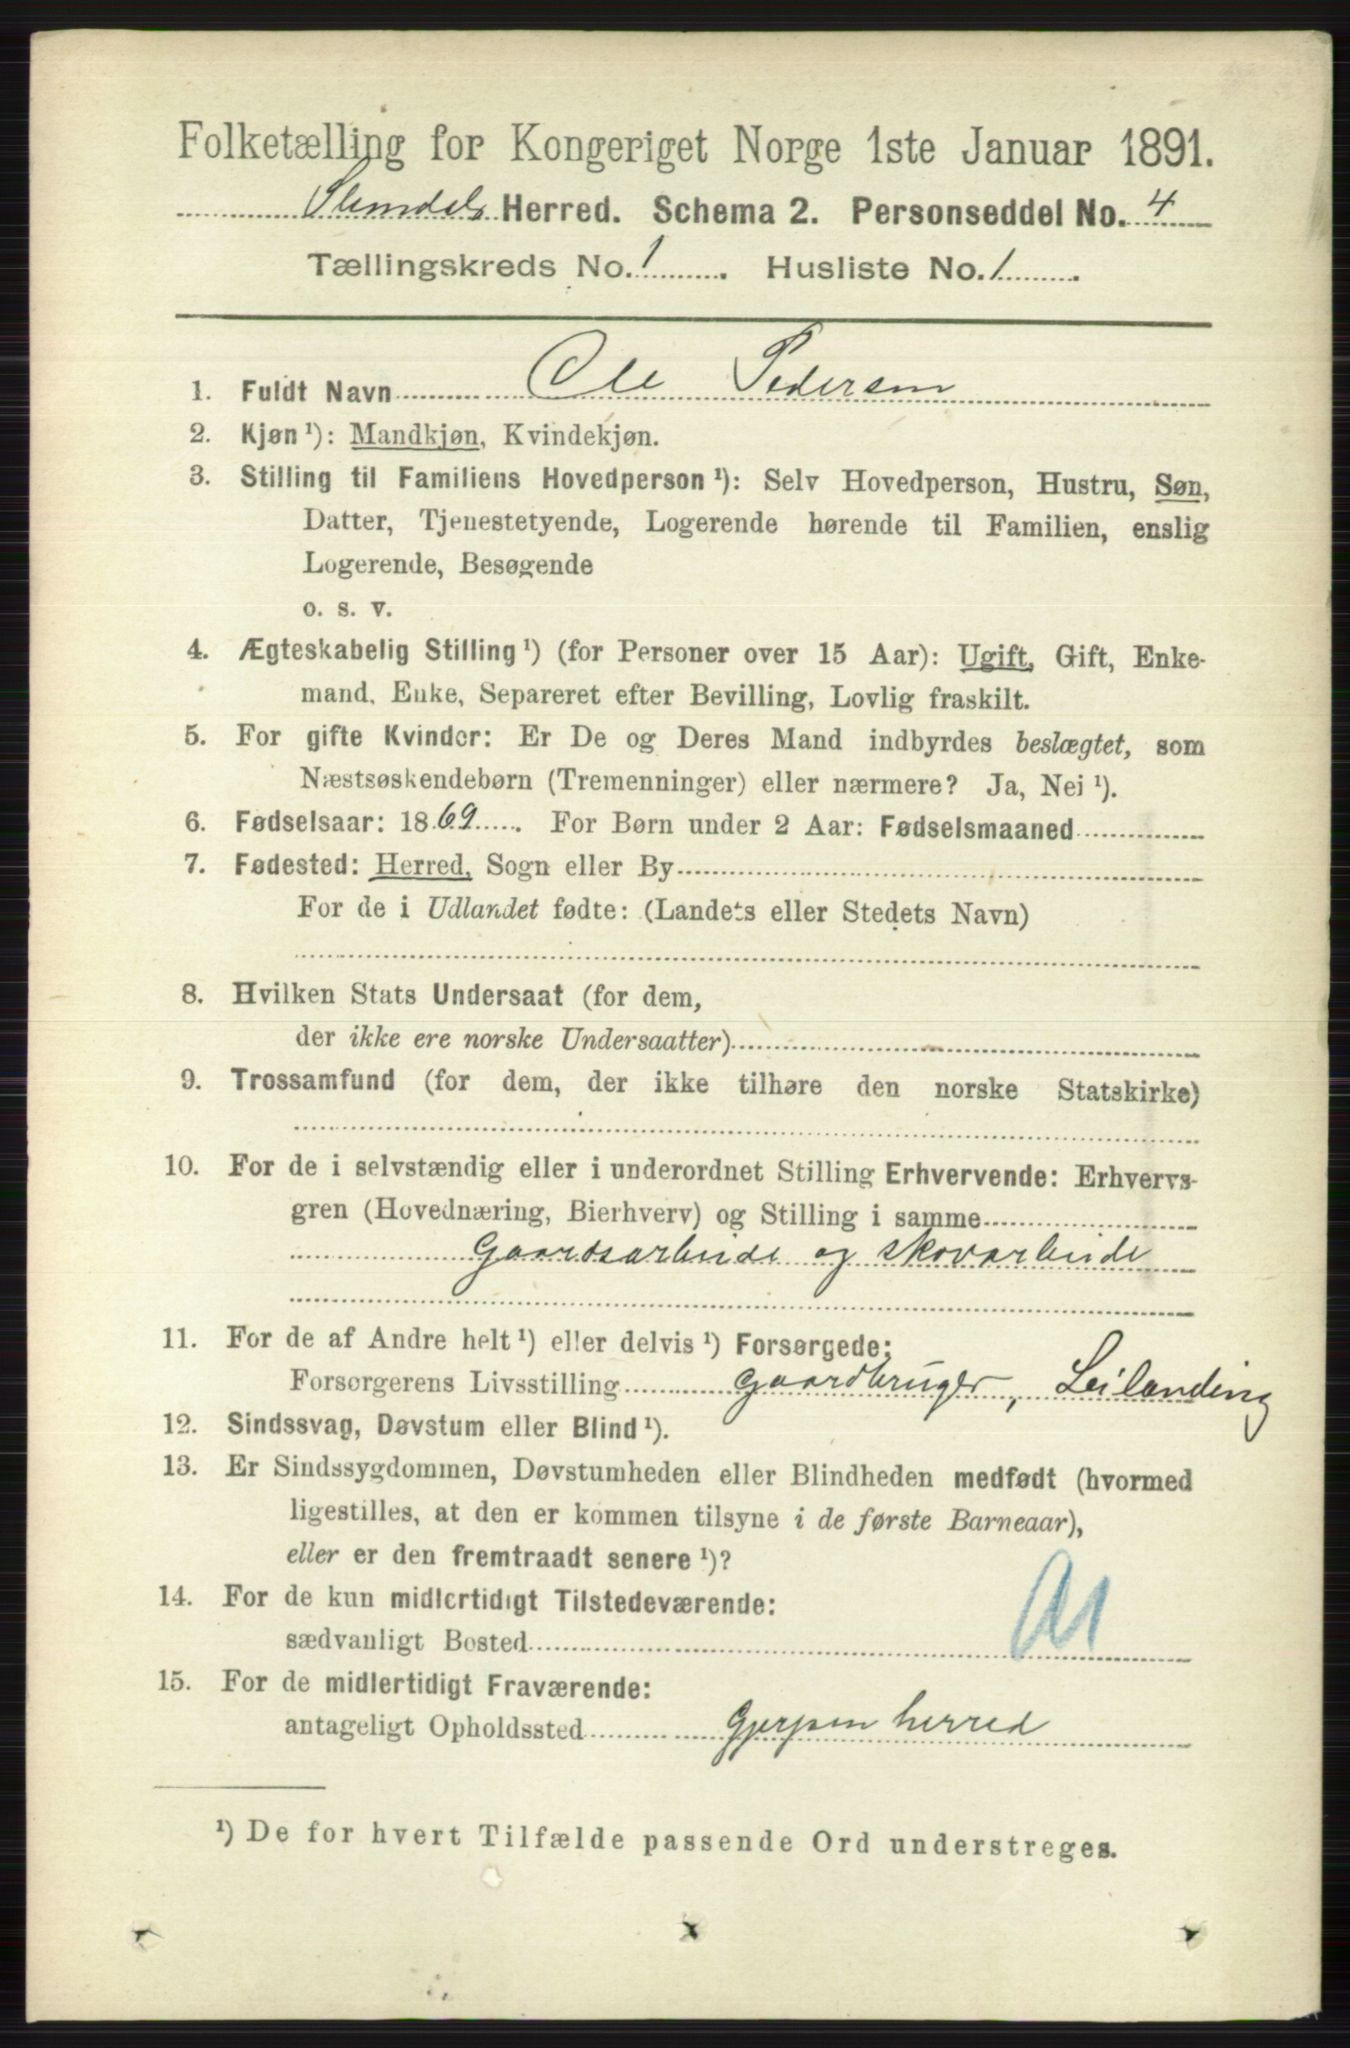 Folketælling for Kongeriget Norge 1ste Januar 1891.
Slemdals Herred. Schema 2. Personseddel No. 4
Tællingskreds No. 1. Husliste No. 1.
1. Fuldt Navn Ole Pedersen
2. Kjøn ¹): Mandkjøn, Kvindekjøn.
3. Stilling til Familiens Hovedperson ¹): Selv Hovedperson, Hustru, Søn,
Datter, Tjenestetyende, Logerende hørende til Familien, enslig
Logerende, Besøgende
o. s. v.
4. Ægteskabelig Stilling ¹) (for Personer over 15 Aar): Ugift, Gift, Enke-
mand, Enke, Separeret efter Bevilling, Lovlig fraskilt.
5. For gifte Kvinder: Er De og Deres Mand indbyrdes beslægtet, som
Næstsøskendebørn (Tremenninger) eller nærmere? Ja, Nei ¹).
6. Fødselsaar: 1869. For Børn under 2 Aar: Fødselsmaaned
7. Fødested: Herred, Sogn eller By
For de i Udlandet fødte: (Landets eller Stedets Navn)
8. Hvilken Stats Undersaat (for dem,
der ikke ere norske Undersaatter)
9. Trossamfund (for dem, der ikke tilhøre den norske Statskirke)
10. For de i selvstændig eller i underordnet Stilling Erhvervende: Erhvervs-
gren (Hovednæring, Bierhverv) og Stilling i samme
Gaardsarbeide og skovarbeide
11. For de af Andre helt ¹) eller delvis ¹) Forsørgede:
Forsørgerens Livsstilling gaardbruger, Leilanding
12. Sindssvag, Døvstum eller Blind ¹).
13. Er Sindssygdommen, Døvstumheden eller Blindheden medfødt (hvormed
ligestilles, at den er kommen tilsyne i de første Barneaar),
eller er den fremtraadt senere ¹)?
14. For de kun midlertidigt Tilstedeværende:
sædvanligt Bosted
15. For de midlertidigt Fraværende:
antageligt Opholdssted Gjerpen herred
¹) De for hvert Tilfælde passende Ord understreges.